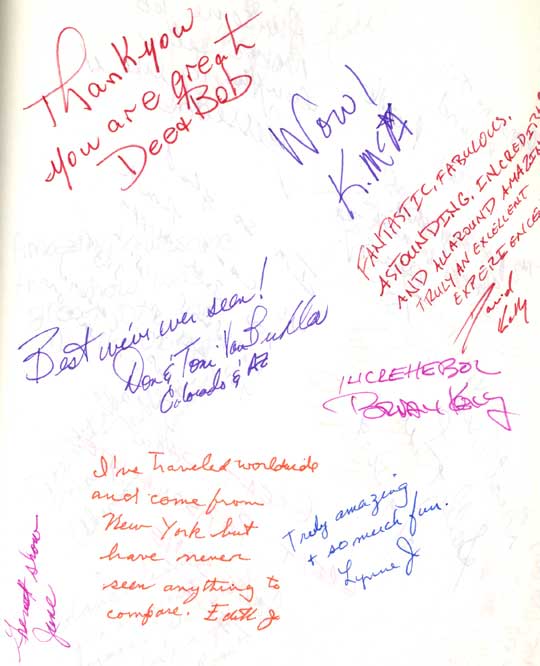 Thank you
you are great
Dee & Bob
Wow!
K. McA
FANTASTIC, FABULOUS,
ASTOUNDING, INCREDIBLE
AND ALLAROUND AMAZING
TRULY AN EXCELLENT
EXPERIENCE
David
Kelly
Best we've ever seen!
Don & Toni
Colorado & AZ
INCREHEBOL
I've traveled worldwide
and come from
New York but
have never
seen anything to
compare. Edith Jo
Truly amazing
+ so much fun.
Lynne J
Great show
Jane